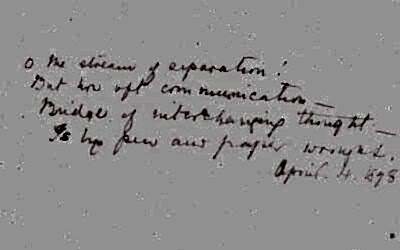 O the stream of separation!
But how oft communication —
Bridge of interchanging thought —
Is by pen and paper wrought.
April. 4. 1898